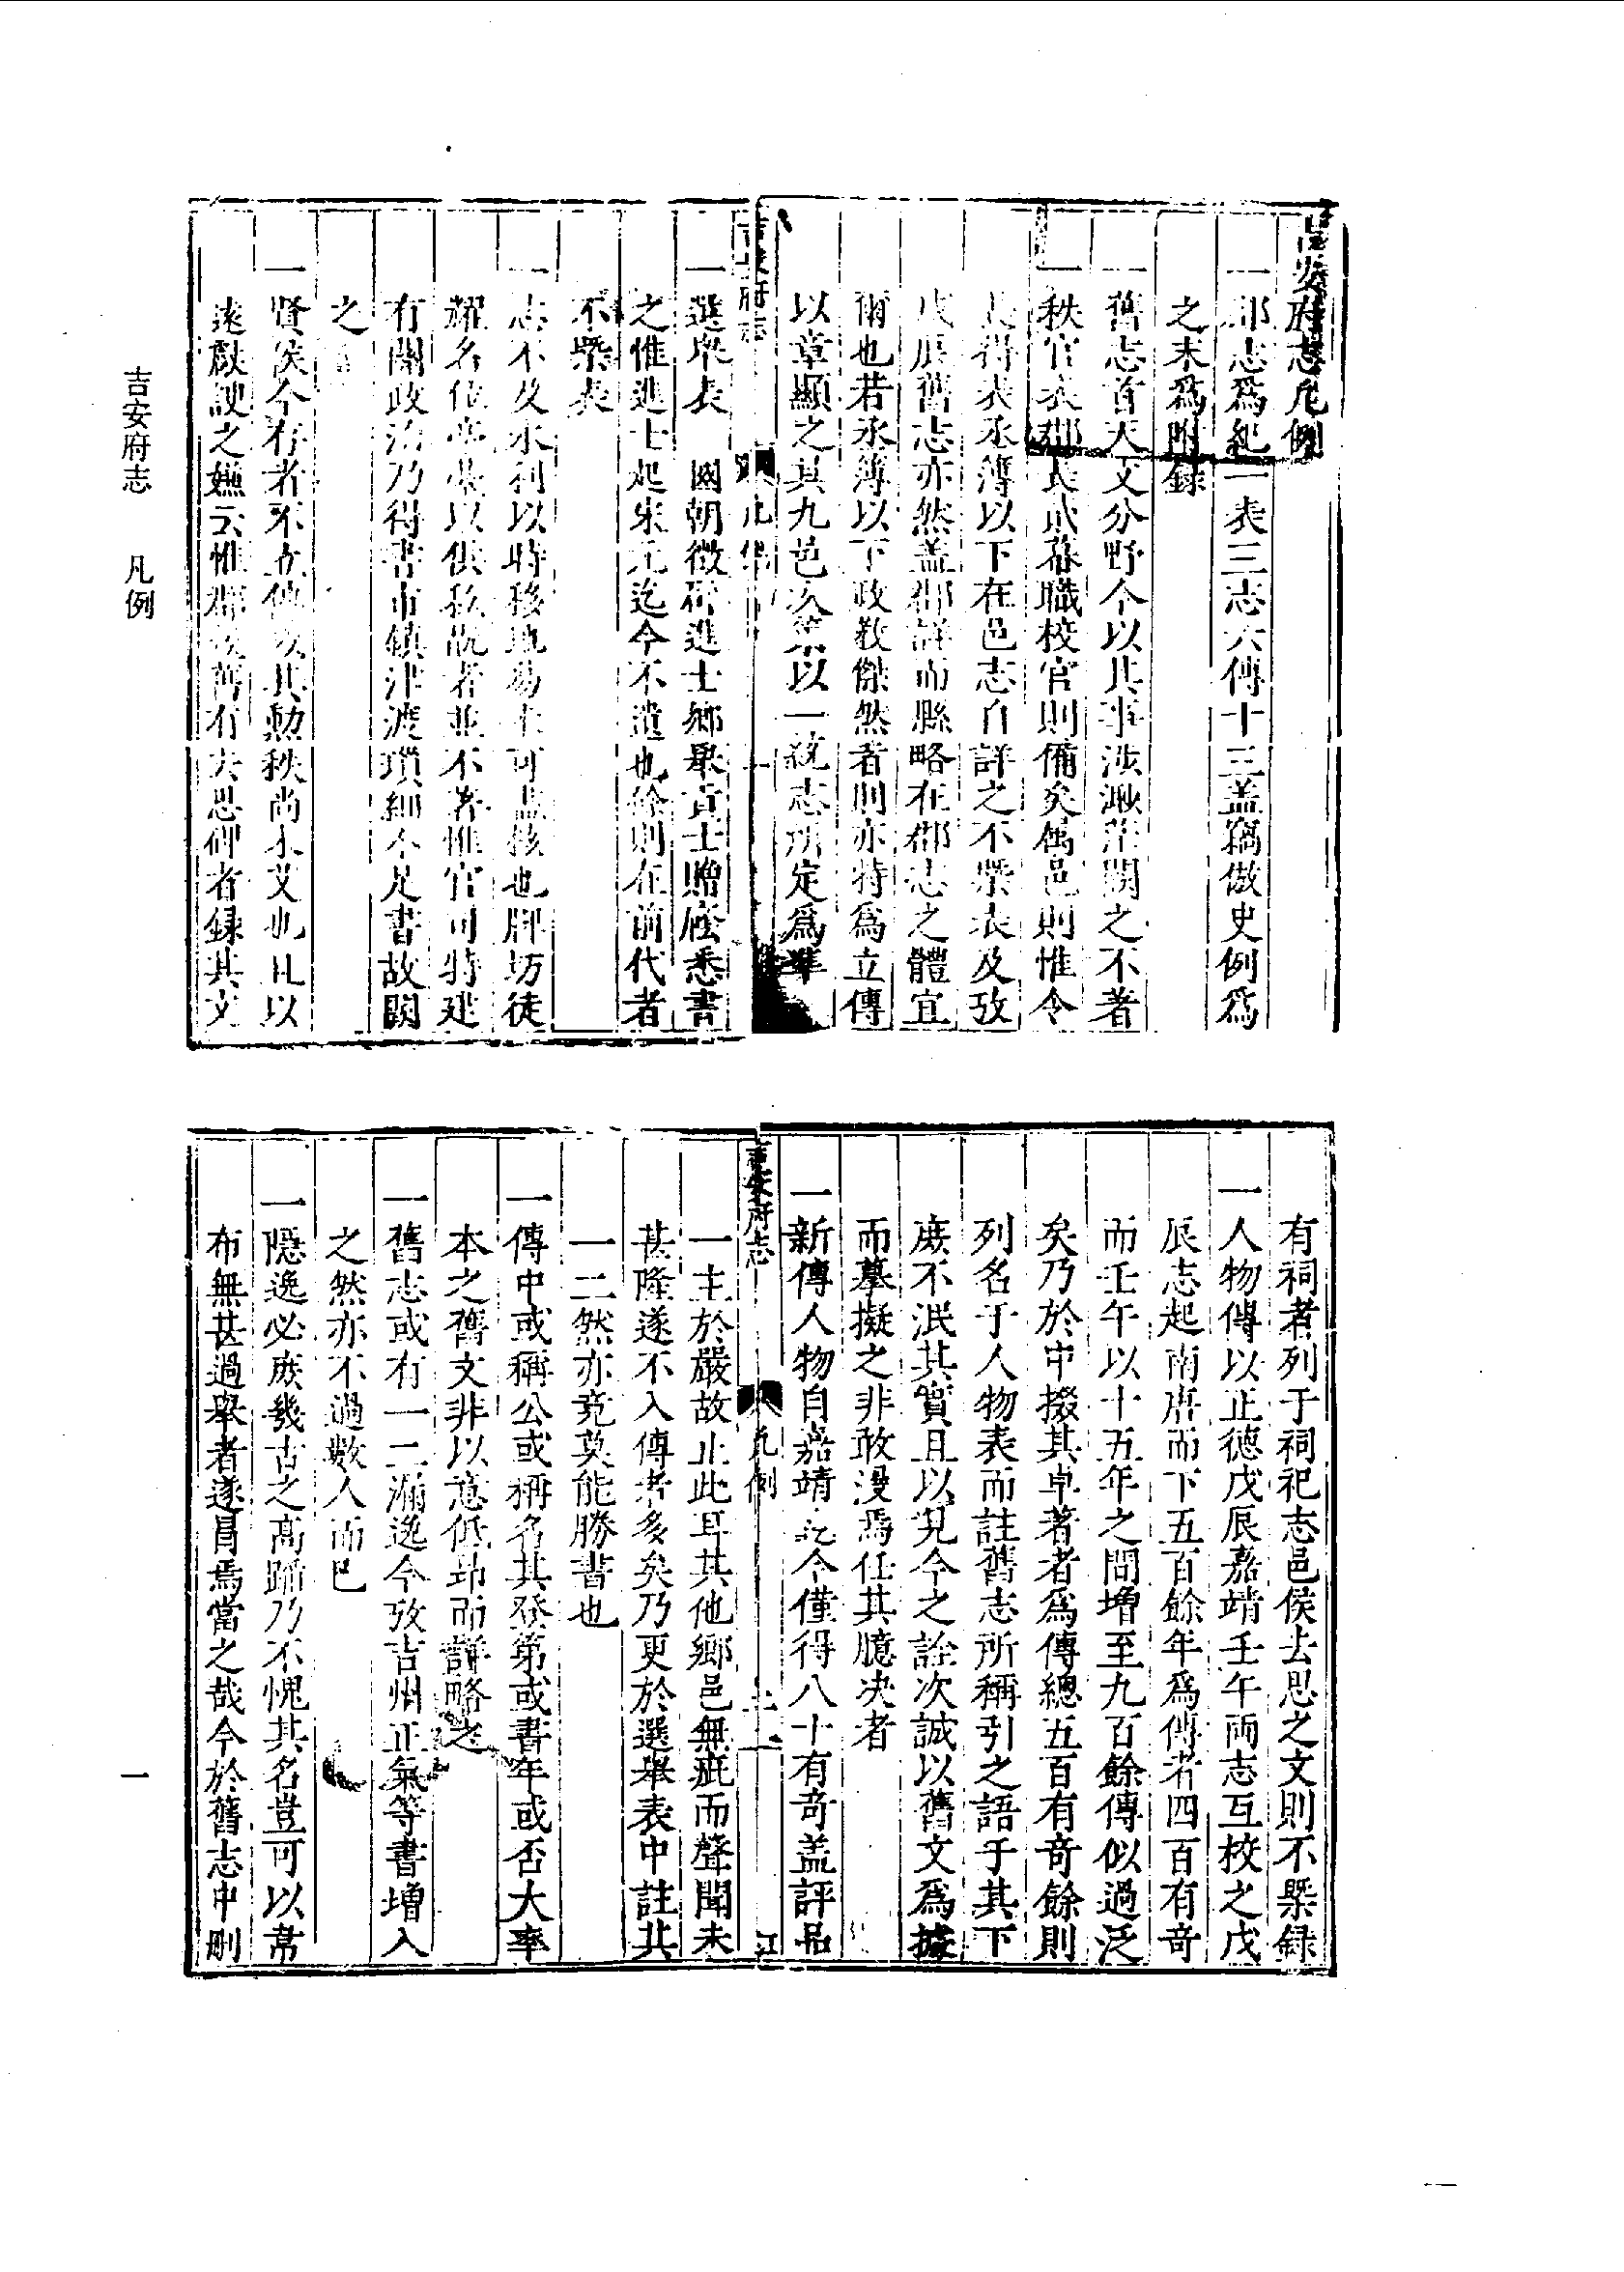 吉安府志凡例
一郡志爲紀一表三志六傳十三盖竊倣史例爲
之末爲附録
一舊志首天文分野今以其事涉渺茫闕之不著
一秩官表郡長貳幕職校官則備矣属邑則惟令
長得表丞簿以下在邑志自詳之不槩表及攷
戊辰舊志亦然盖郡詳而縣略在郡志之體宜
爾也若丞簿以下政教傑然者則亦特爲立傳
以章顯之其九邑次第以一統志所定爲準
吉安府志
凡例
一
一選举表 國朝徵辟進士鄉舉貢士贈廕悉書
之惟進士起宋元迄今不遺也餘則在前代者
不槩表
一志不及水利以時移地易未可盡核也牌坊徒
耀名位亭臺以供私翫者並不著惟官司特建
有關政治乃得書市鎮津渡瑣細不足書故闕
之
一賢侯今存者不立傳以其勳秩尚未艾也且以
遠獻諛之嫌云惟郡侯舊有去思碑者録其文
有祠者列于祠祀志邑侯去思之文則不槩録
一人物傳以正德戊辰嘉靖壬午両志互校之戊
辰志起南唐而下五百餘年爲傳者四百有奇
而壬午以十五年之間增至九百餘傳似過泛
矣乃於中掇其卓著者爲傳總五百有奇餘則
列名于人物表而註舊志所稱引之語于其下
庻不泯其實且以見今之詮次誠以舊文爲據
而摹擬之非敢漫焉任其臆决者
一新傳人物自嘉靖迄今僅得八十有奇盖評品
吉安府志
凡例
二
一主於嚴故止此耳其他鄉邑無疵而聲聞未
甚隆遂不入傳者多矣乃更於選舉表中註其
一二然亦竟莫能勝書也
一傳中或稱公或稱名其登第或書年或否大率
本之舊文非以意低昻而詳略之
一舊志或有一二漏逸今攷吉州正氣等書增入
之然亦不過數人而已
一隠逸必庻幾古之高蹈乃不愧其名豈可以韋
布無甚過舉者遂冒焉當之哉今於舊志中刪
吉安府志 凡例
一